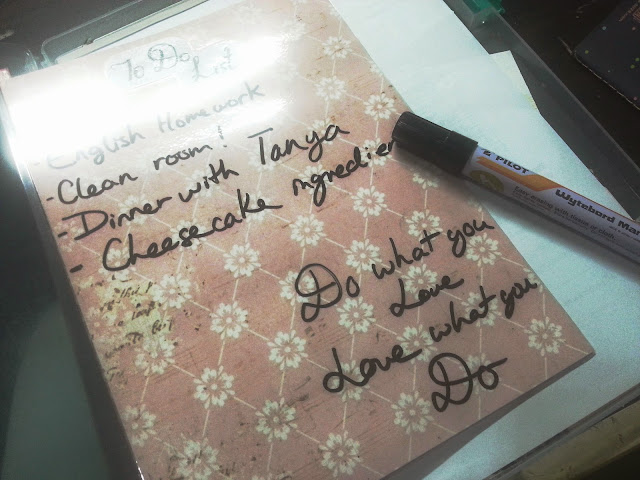 To Do
List
- English Homework
- Clean room!
- Dinner with Tanya
- Cheesecake ingredien
Do what you
Love
Love what you
Do
PILOT
Wytebord Mar